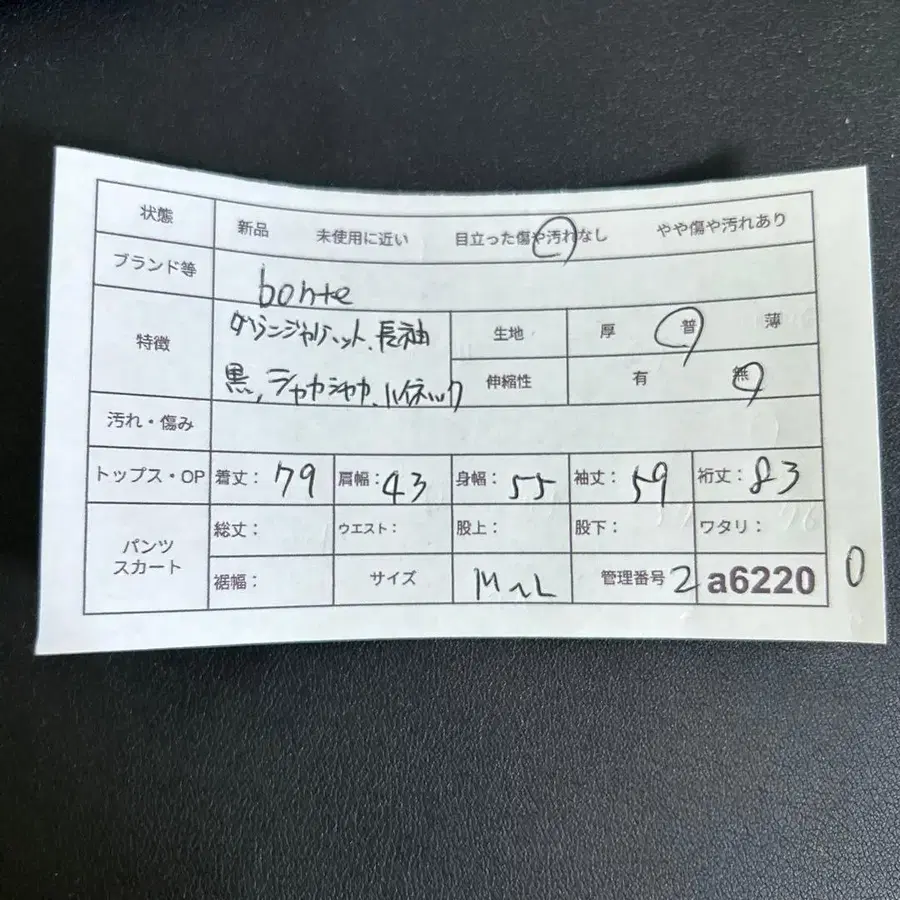 状態 新品 未使用に近い 目立った傷や汚れなし やや傷や汚れあり
ブランド等 bonte
特徴 ダウンジャケット、長袖 生地 厚 普 薄
黒、シャカシャカ、ハイネック 伸縮性 有 無
汚れ・傷み
トップス・OP 着丈: 79 肩幅: 43 身幅: 55 袖丈: 59 裄丈: 83
パンツ スカート 総丈: ウエスト: 股上: 股下: ワタリ:
裾幅: サイズ M~L 管理番号 2 a6220 0